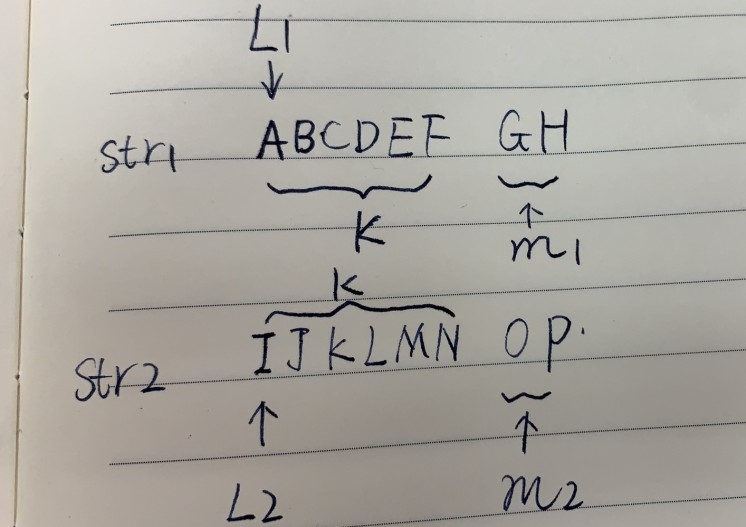 L1
↓
str1 ABCDEF GH
K
↑
m1
K
IJKLMN OP.
str2
↑ ↑
L2 m2